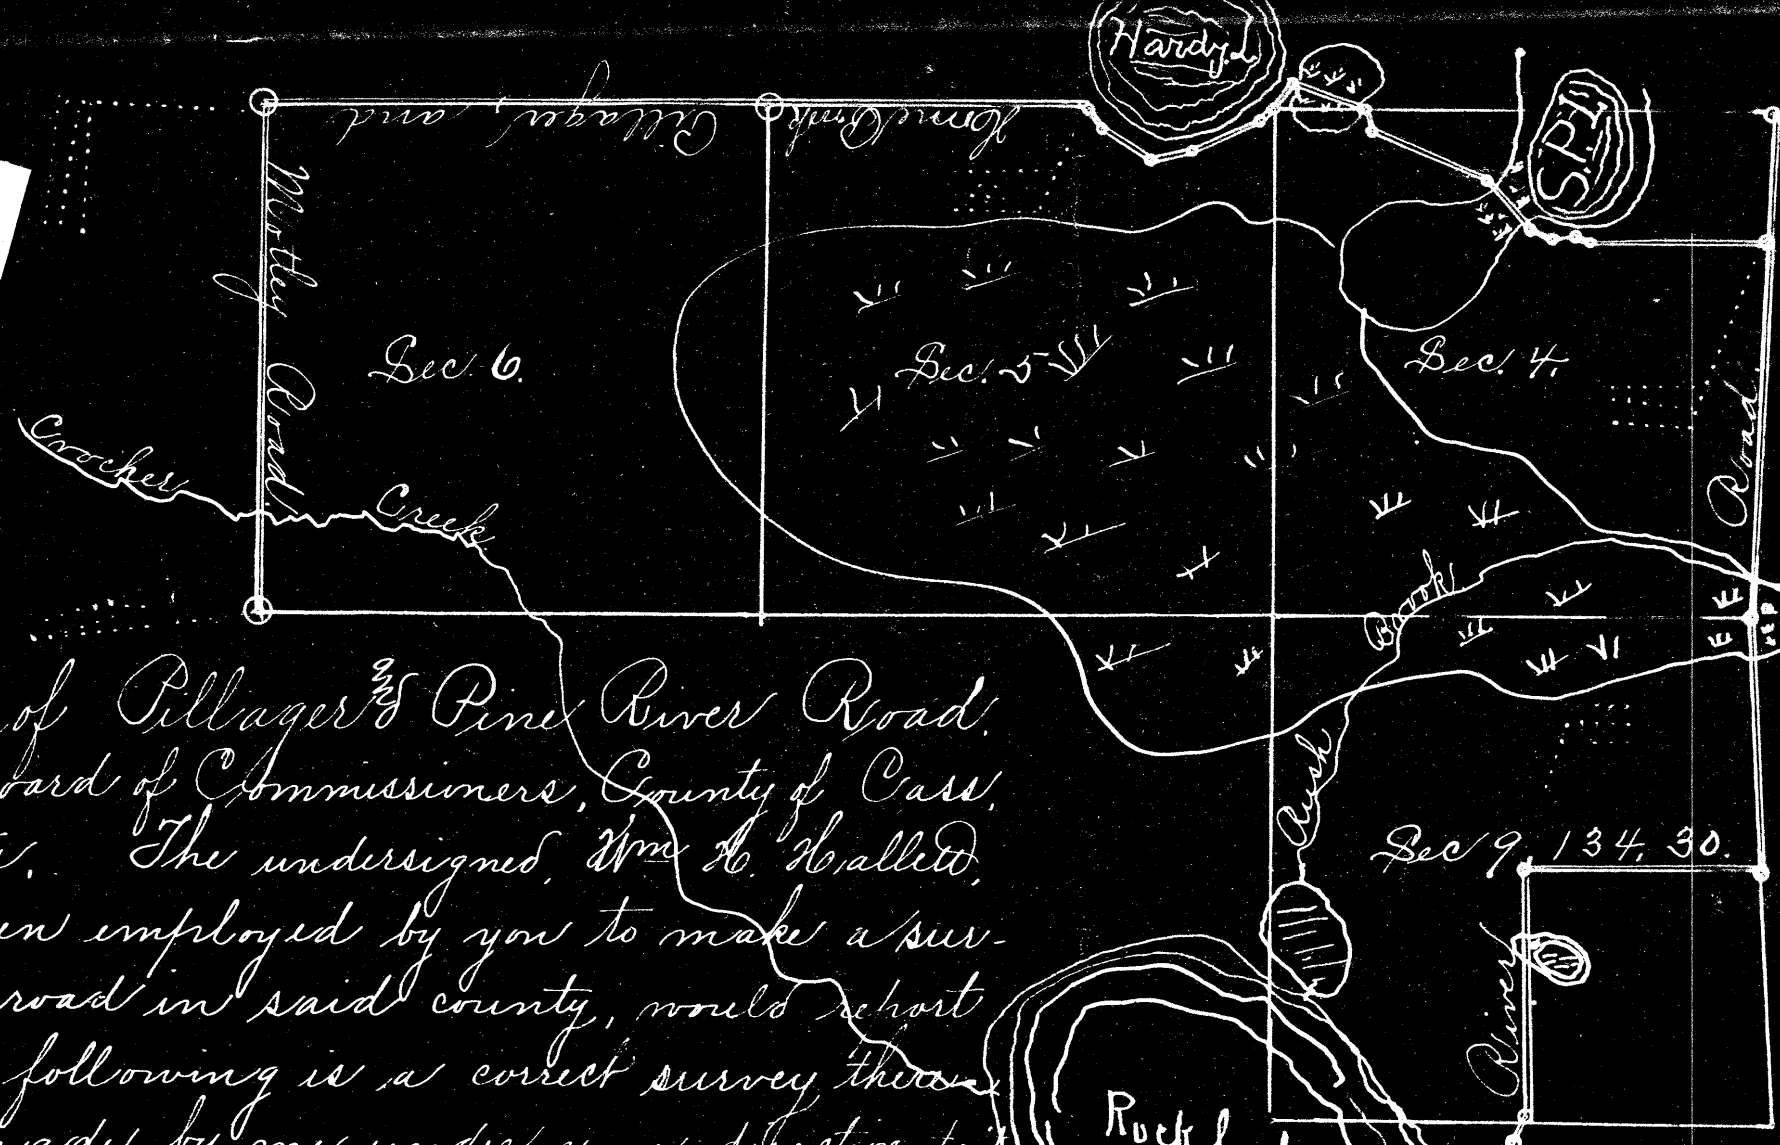 Hardy L.
Pillager, and
S.P.L
Motley Road.
Sec. 6.
Sec. 5
Sec. 4.
Road.
Crocker Creek
Rush Brook
of Pillager and Pine River Road.
oard of Commissioners, County of Cass,
The undersigned, Wm H. Hallett,
en employed by you to make a sur-
road in said county, would report
following is a correct survey there-
by me
Sec 9, 134, 30.
River